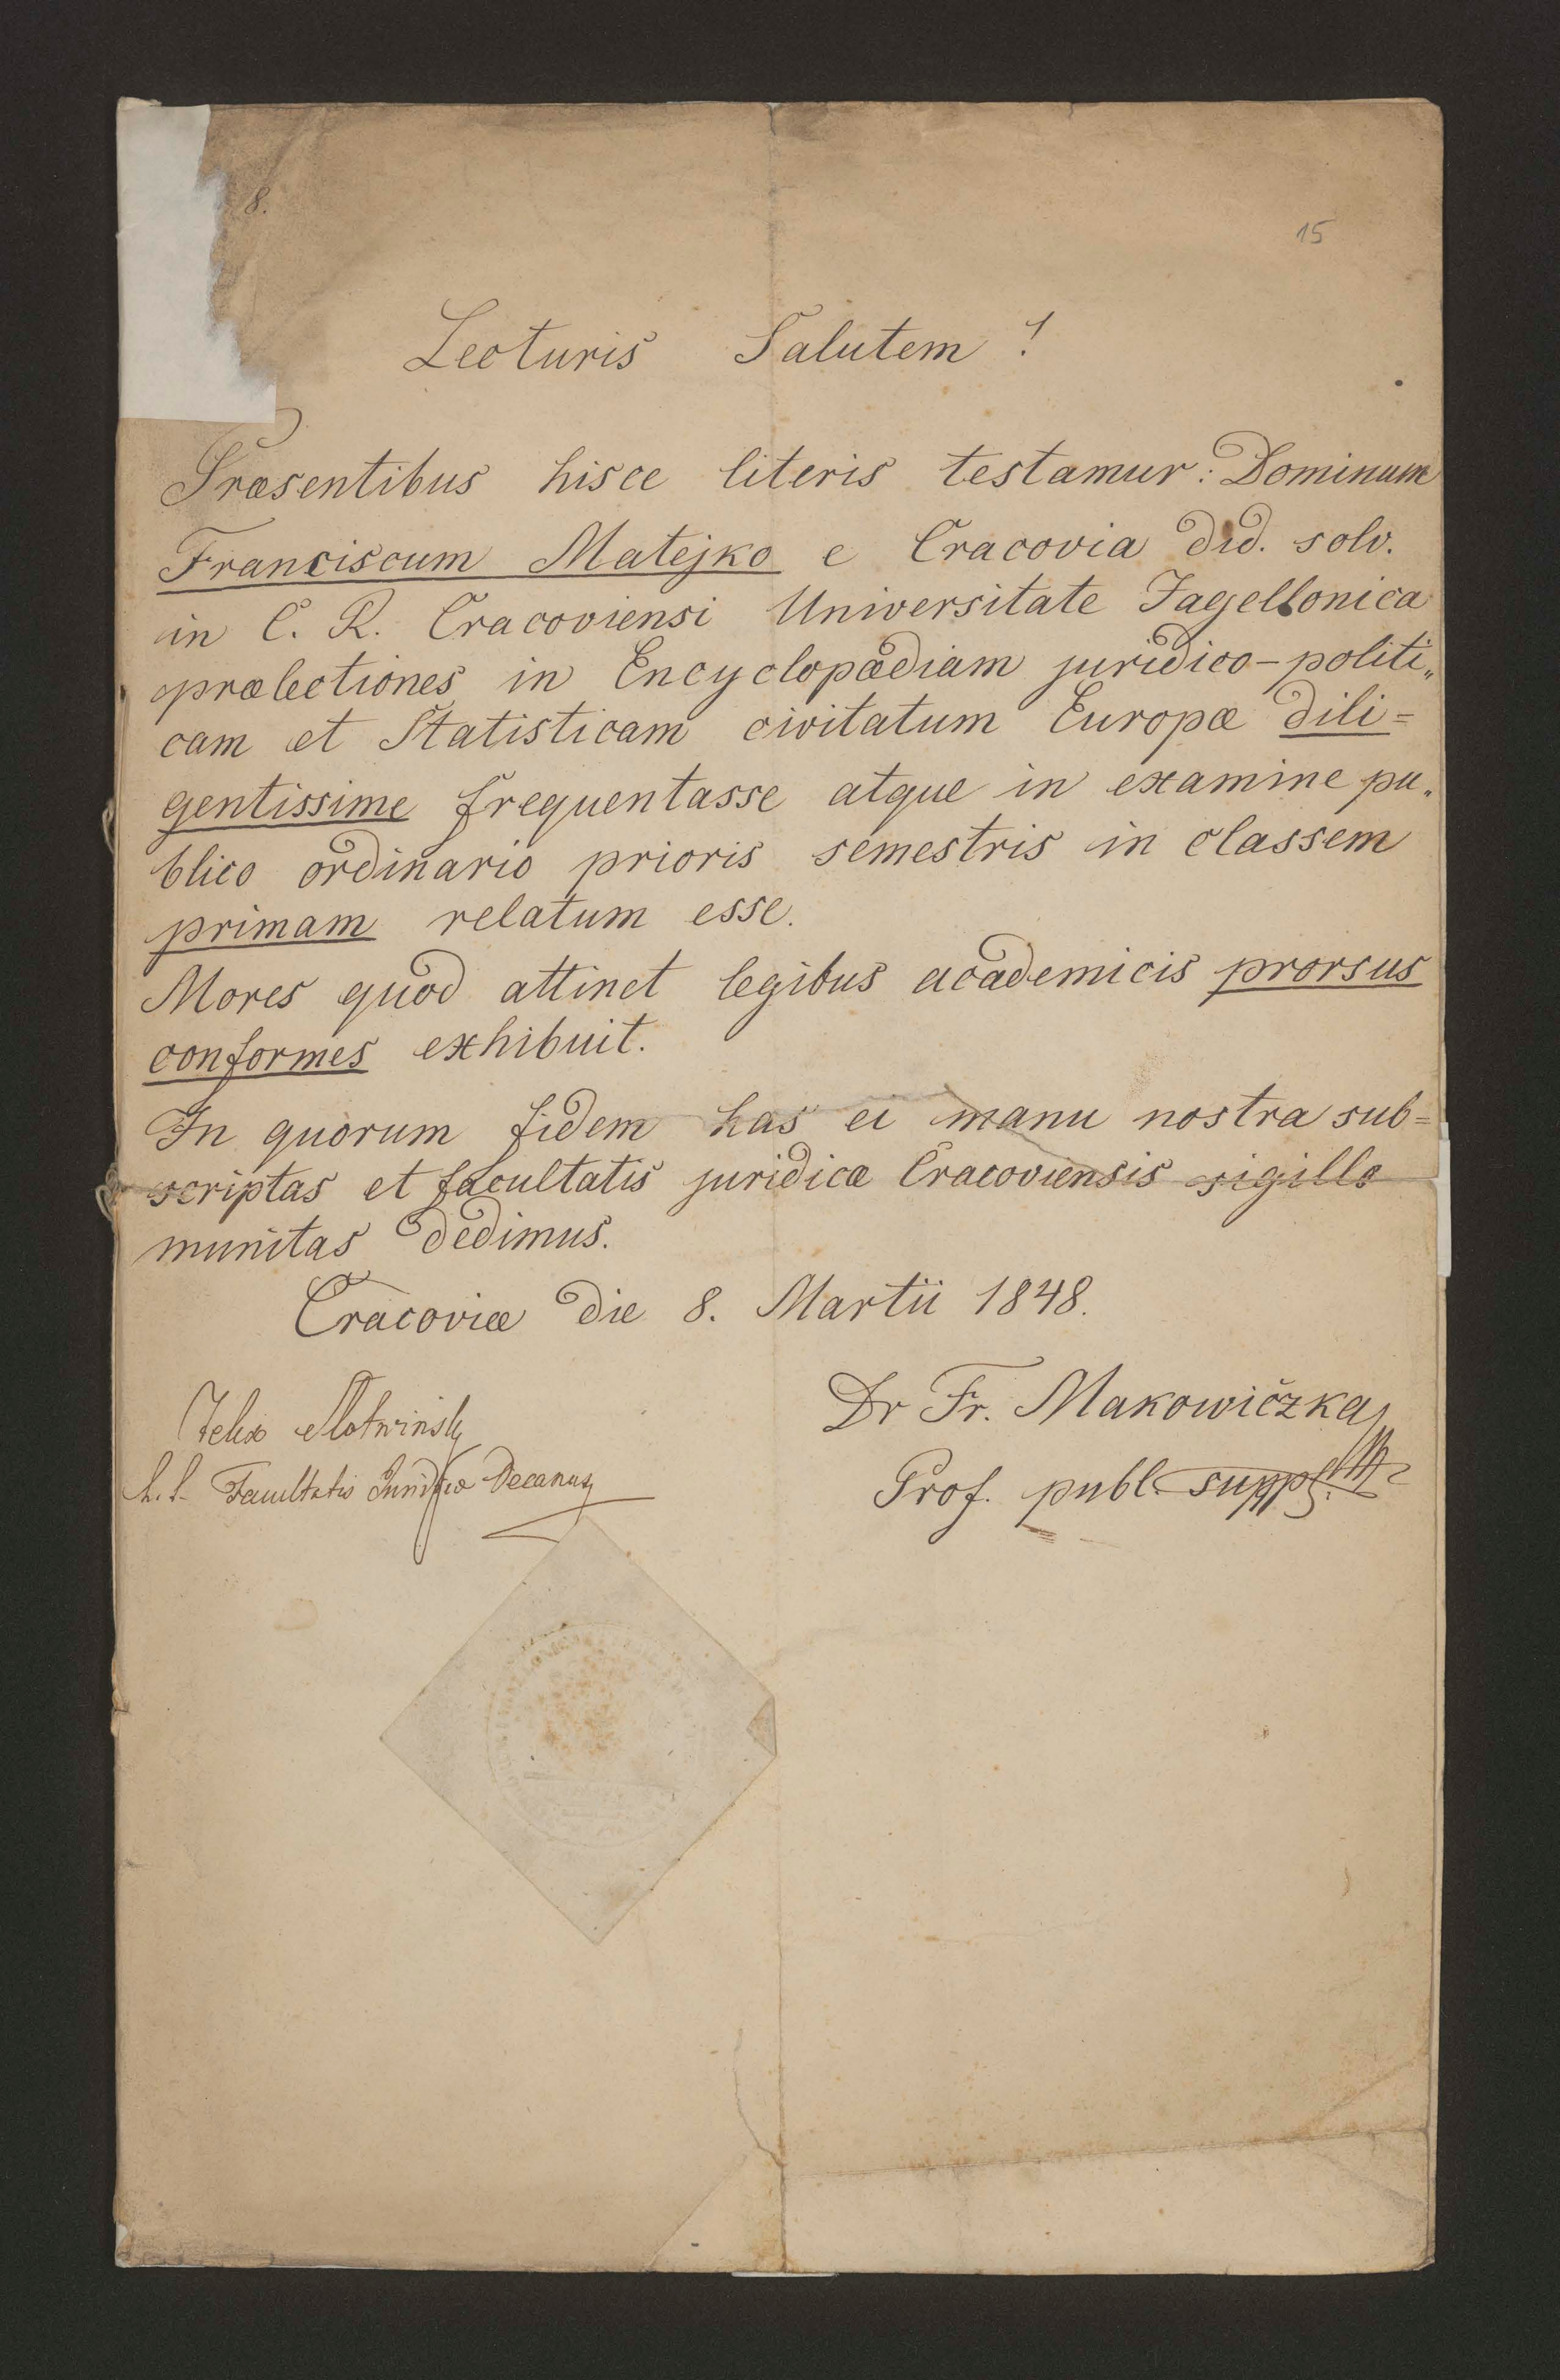 8.
15
Lecturis Salutem!
Præsentibus hisce literis testamur: Dominum
Franciscum Matejko e Cracovia did. solv.
in C. R. Cracoviensi Universitate Jagellonica
prælectiones in Encyclopædiam juridico-politi„
cam et Statisticam civitatum Europæ dili=
gentissime frequentasse atque in examine pu„
blico ordinario prioris semestris in classem
primam relatum esse.
Mores quod attinet legibus academicis prorsus
conformes exhibuit.
In quorum fidem has ei manu nostra sub=
scriptas et facultatis juridicæ Cracoviensis sigillo
munitas dedimus.
Cracoviæ die 8. Martii 1848.
Felix Słotwiński
Facultatis Juridicæ Decanus
Dr Fr. Makowiczka
Prof. publ. suppl.